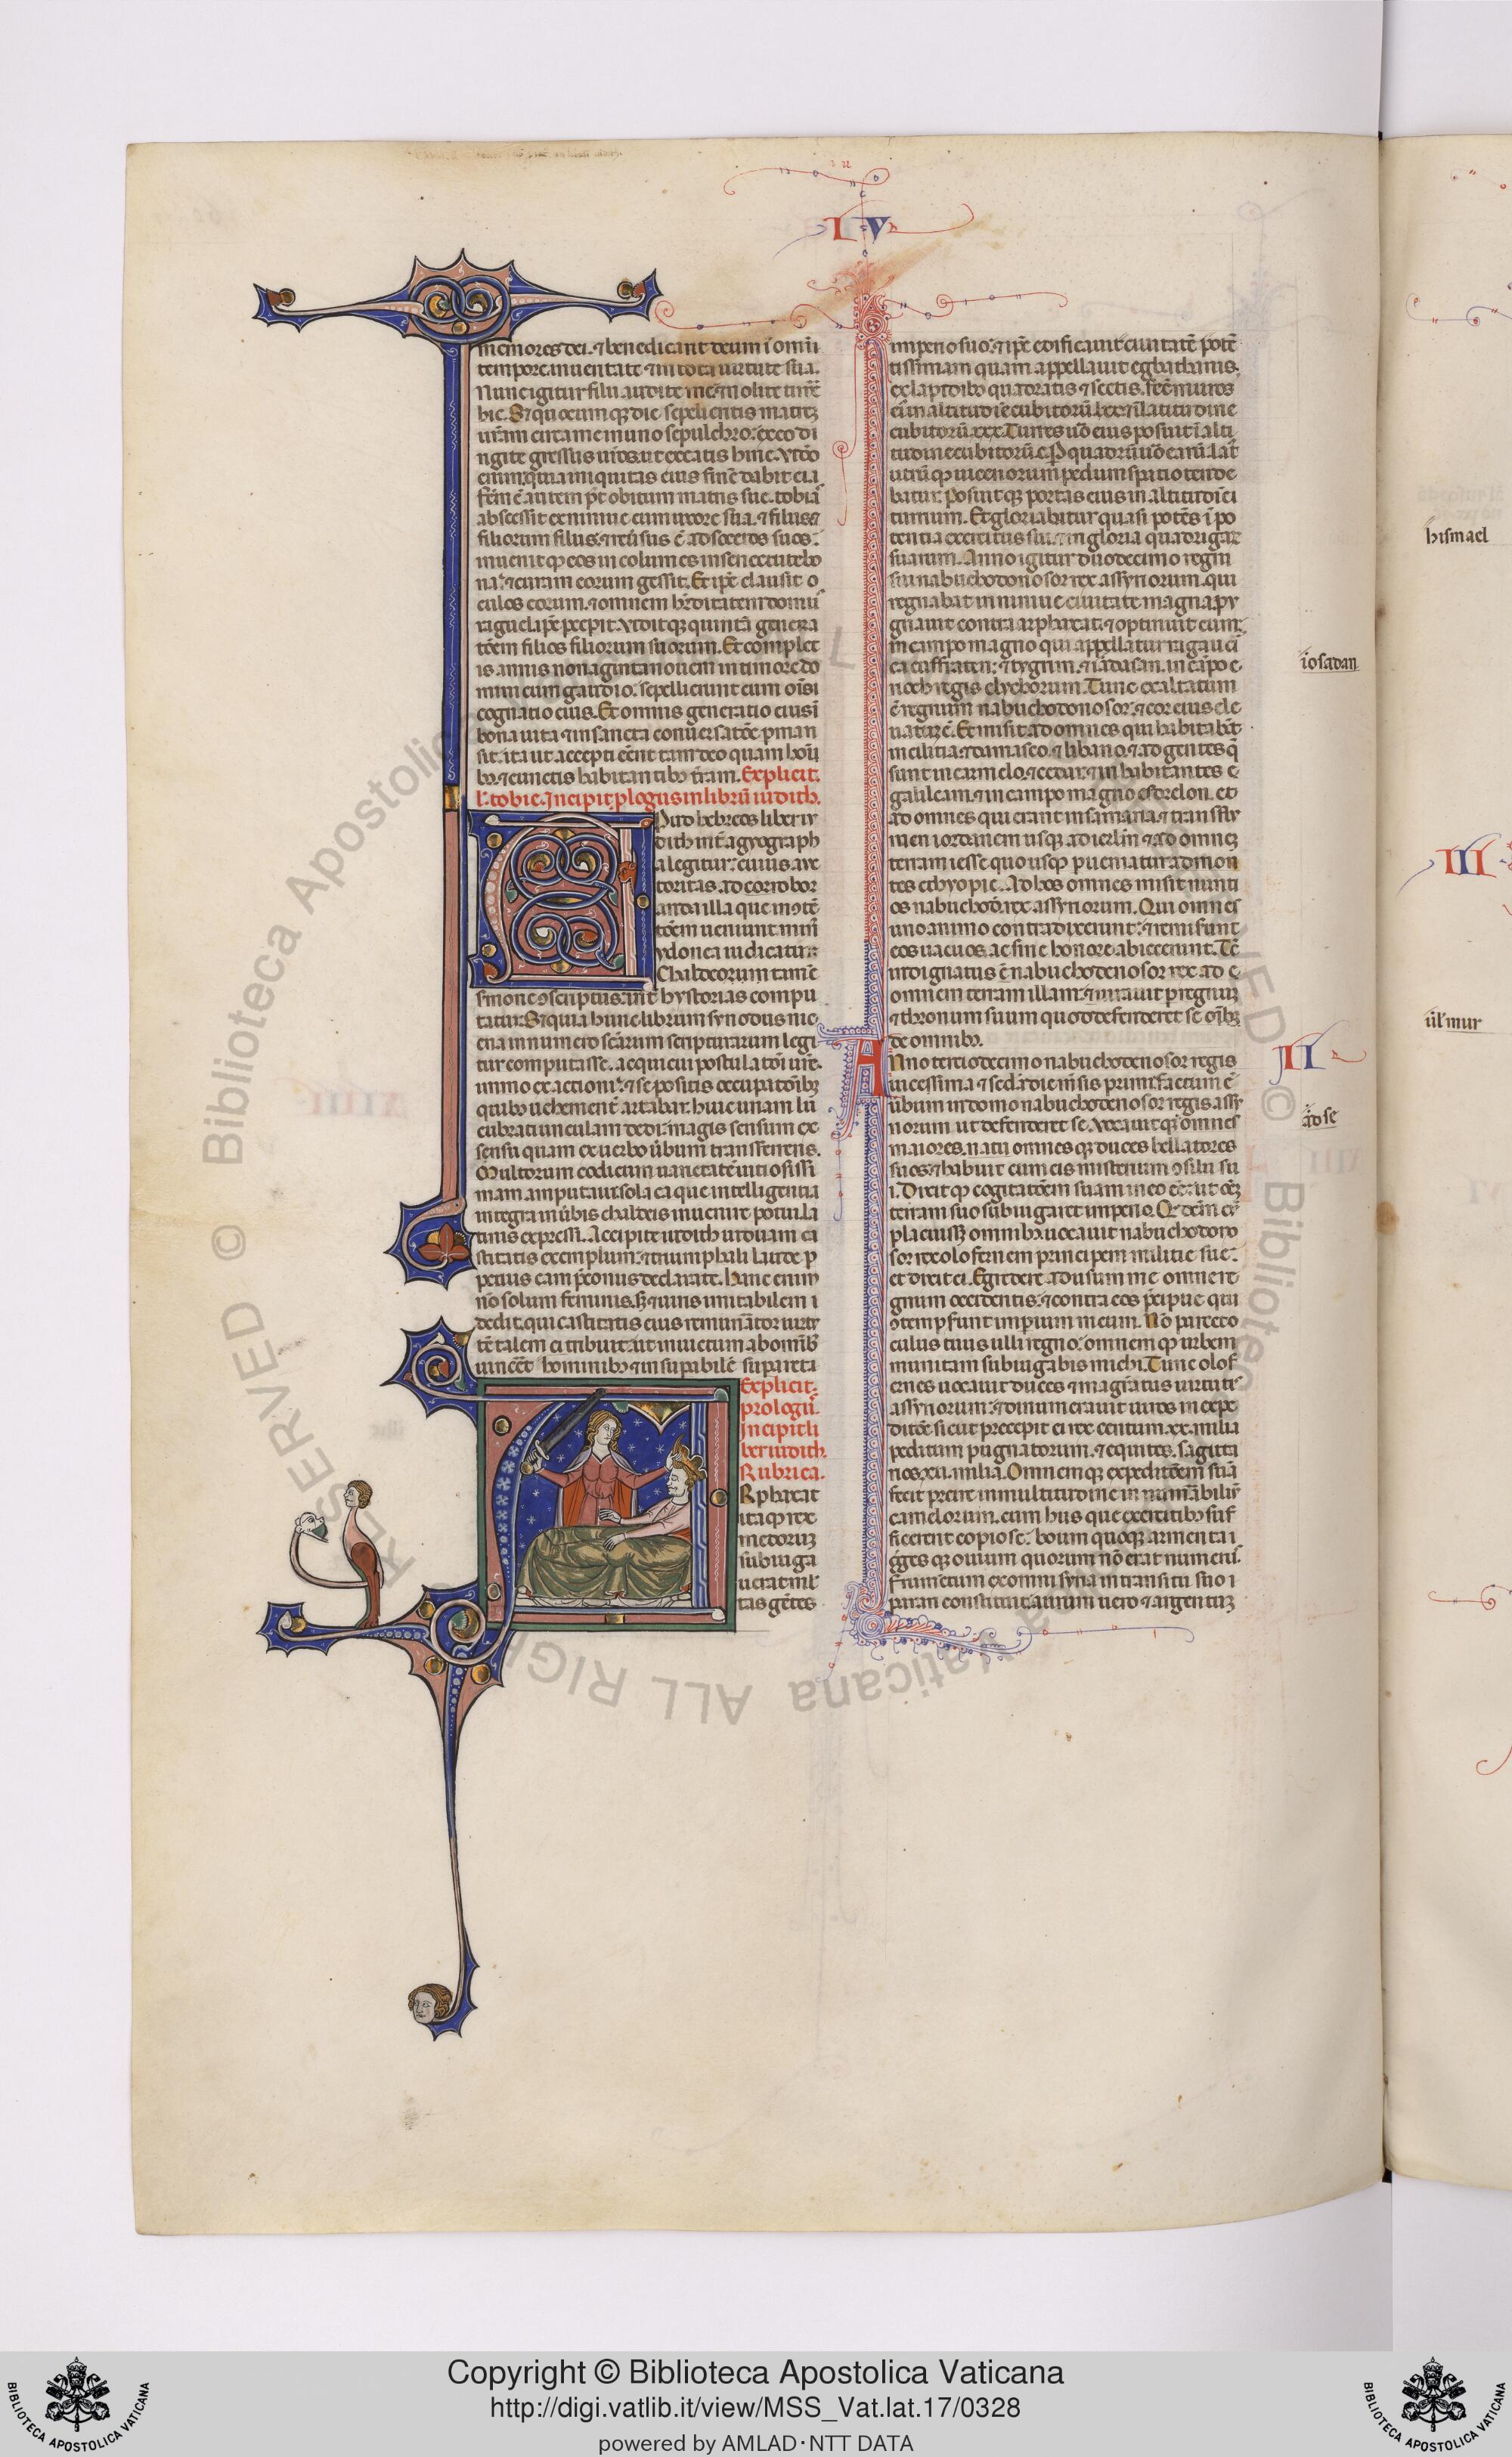 I V
memores dei. ⁊ benedicant deum ī omni
tempore. in ueritate ⁊ in tota uirtute sua.
Nunc igitur filii audite me ⁊ nolite
hic. S; quocumque die sepelieritis matrē
urām circa me in uno sepulchro. ex eo di
rigite gressus uros. ut exeatis hinc. Video
enim. quia iniquitas eius finē dabit ei.
autem obitum matris sue. tobias
abscessit ex niniue cum uxore sua. ⁊ filiis ⁊
filiorum filiis. ⁊ reūsus ē ad soceros suos.
inuenitque eos incolumes in senectute bo
na. ⁊ curam eorum gessit. Et ipē clausit o
culos eorum. ⁊ omnem hereditatem domus
raguelis ipē percepit. Viditque quintā genera
tōem filios filiorum suorum. Et complet
is annis nonaginta nouem in timore do
mini cum gaudio. sepelierunt eum omīs
cognatio eius. Et omnis generatio eius ī
bona uita ⁊ in sancta conuersatōe pman
sit. ita ut accepti eēnt tam deo quam homi
bꝰ. ⁊ cunctis habitantibꝰ terram. Explicit
l. tobie. Incipit plogus in librū iudith.
Apud hebreos liber iu
dith int agyograph
a legitur. cuius auc
toritas. ad corrobor
anda illa que in ꝯtē
tōem ueniunt. minꝰ
ydonea iudicatur.
Chaldeorum tamē
smone ꝯscriptus. int hystorias compu
tatur. S; quia hunc librum synodus nic
ena in numero scārum scripturarum legi
tur computasse. acquieui postulatōi ure.
immo exactioni. ⁊ sepositis occupatōibꝫ
quibꝰ uehement artabar. huic unam lu
cubratiunculam dedi. magis sensum ex
sensu quam ex uerbo ūbum transferens.
Multorum codicum uarietatē uitiosissi
mam amputaui. sola ea que intelligentia
integra in ūbis chaldeis inuenire potui. la
tinis expressi. Accipite iudith uiduam ca
stitatis exemplum. ⁊ triumphali laude. p
petuis eam pconiis declarate. hanc enim
nō solum feminis. s; ⁊ uiris imitabilem
dedit. qui castitatis eius remunator uirtu
tē talem ei tribuit. ut inuictum ab omībꝰ
uinceret hominibꝰ ⁊ insupabilē supareta
Explicit
prologꝰ.
Incipit li
ber iudith.
Rubrica.
Arphaxat
itaque rex
medorum
subiuga
uerat mul
tas gētes
imperio suo. ⁊ ipē edificauit ciuitatē potē
tissimam quam appellauit egbathanis.
ex lapidibꝰ quadratis ⁊ sectis. fecit muros
eius in altitudīe cubitorū lxx. ⁊ ī latitudine
cubitorū xxx. Turres uō eius posuit ī alti
tudine cubitorū c. P quadrū uō earū lat
utrūque uicenorum pedum spatio tende
batur. posuitque portas eius in altitudīe
turrium. Et gloriabatur quasi potēs ī po
tentia exercitus sui. ⁊ in gloria quadrigar
suarum. Anno igitur duodecimo regni
sui nabuchodonosor rex assyriorum. qui
regnabat in niniue ciuitate magna. pu
gnauit contra arphaxat. ⁊ optinuit eum
in campo magno qui appellatur ragau ci
ca euffraten. ⁊ tygrim. ⁊ iadasan. in cāpo e
rioch regis elychorum. Tunc exaltatum
ē regnum nabuchodonosor. ⁊ cor eius ele
uatum ē. Et misit ad omnes qui habitabāt
in cilitia. ⁊ damasco. ⁊ libano. ⁊ ad gentes q̄
sunt in carmelo. ⁊ cedar. ⁊ inhabitantes
galileam. ⁊ in campo magno esdrelon. et
ad omnes qui erant in samaria ⁊ trans flu
men iordanem usque ad ierlm ⁊ ad omnem
terram iesse quousque pueniatur ad mon
tes ethyopie. Ad hos omnes misit nunti
os nabuchod. rex assyriorum. Qui omnes
uno animo contradixerunt. ⁊ remiserunt
eos uacuos. ac sine honore abiecerunt. Tē
indignatus ē nabuchodenosor rex ad
omnem terram illam. ⁊ iurauit p regnum
⁊ thronum suum quod defenderet se
de omnibꝰ.
Anno terciodecimo nabuchodenosor regis
uicessima ⁊ secda die mēsis primi. factum ē
ūbum in domo nabuchodenosor regis assy
riorum ut defenderet se. Vocauitque omnes
maiores natu omnesque duces bellatores
suos. ⁊ habuit cum eis misterium ꝯsilii su
i. Dixitque cogitatōem suam in eo eē. ut oēm
terram suo subiugaret imperio. Qd
placuisset omnibꝰ uocauit nabuchodono
sor rex olofernem principem militie sue.
et dixit ei. Egredere aduersum me omne re
gnum occidentis. ⁊ contra eos pcipue qui
ꝯtempserunt impium meum. Nō parcet o
culus tuus ulli regno. omnemque urbem
munitam subiugabis michi. Tunc olof
ernes uocauit duces ⁊ magratus uirtutis
assyriorum. ⁊ dinumerauit uiros in expe
ditōe sicut precepit ei rex centum. xx. milia
peditum pugnatorum. ⁊ equites. sagitta
rios. xii. milia. Omnemque expeditōem suā
fecit preire in multitudine innumabilis
camelorum. cum hiis que exercitibꝰ suf
ficerent copiose. boum quoque armenta
gregesque ouium quorum nō erat numerꝰ.
Frumentum ex omni syria in transitu suo
parari constituit. aurum uero ⁊ argentum
iosadan
II
ad se
hismael
III
ul murꝰ
© Biblioteca Apostolica Vaticana ALL RIGHTS RESERVED
Copyright © Biblioteca Apostolica Vaticana
http://digi.vatlib.it/view/MSS_Vat.lat.17/0328
powered by AMLAD·NTT DATA
BIBLIOTECA APOSTOLICA VATICANA
BIBLIOTECA APOSTOLICA VATICANA